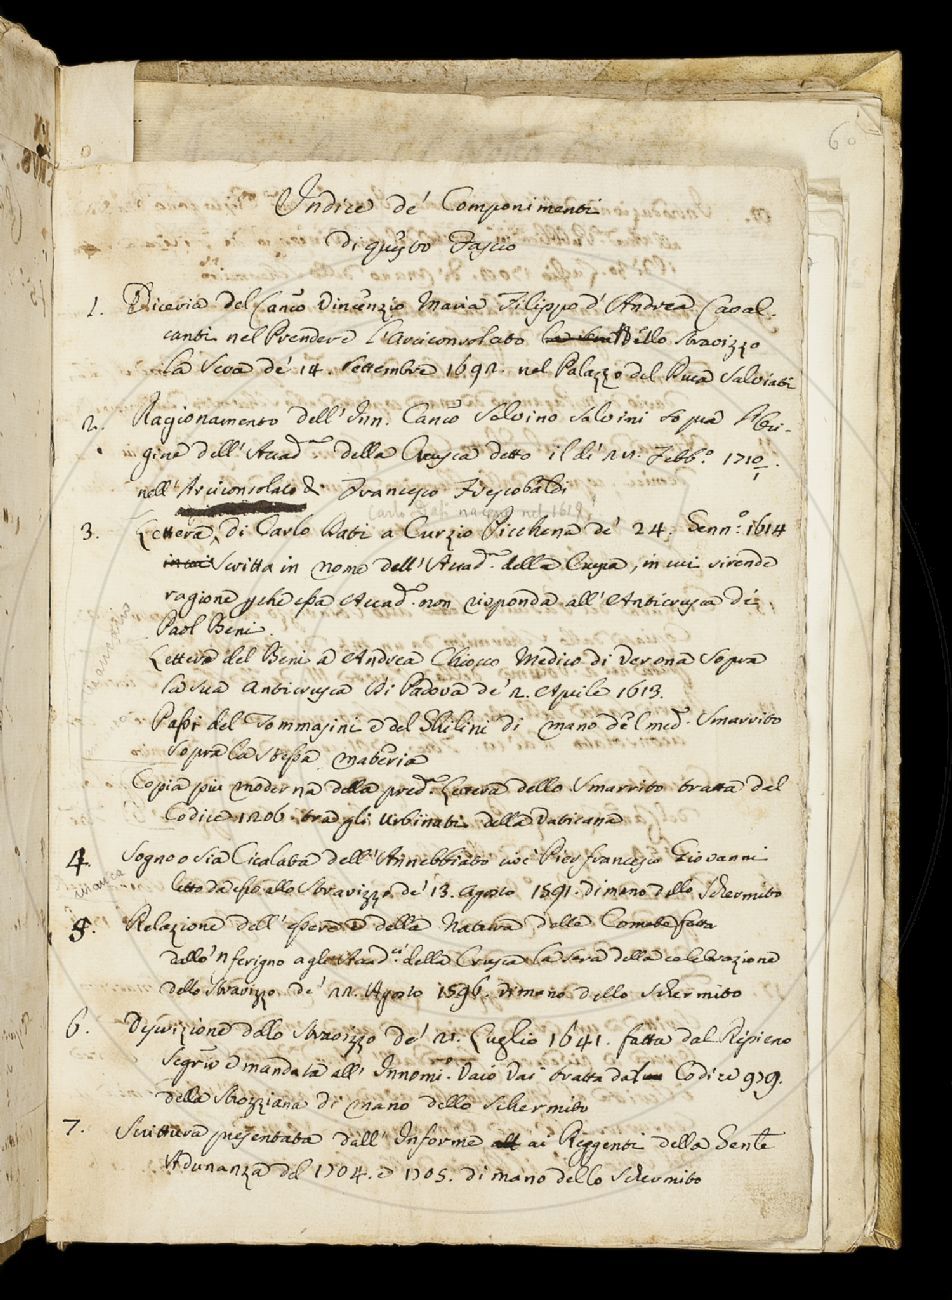 60
Indice de' Componimenti
di questo Fascio
1. Diceria del Canco Vincenzio Maria Filippo d'Andrea Caval-
canti nel Prendere l'Arciconsolato dello Stravizzo
la Sera de' 14. Settembre 1692. nel Palazzo del Duca Salviati
2. Ragionamento dell' Inn. Canco Salvino Salvini sopra l'Ori-
gine dell' Accad. della Crusca detto il dì 21. Febb.o 1710/1.
nell' Arciconsolato di Francesco Frescobaldi
Carlo Dati nacque nel 1619.
3. Lettera di Carlo Dati a Curzio Picchena de' 24. Genn.o 1614
in cui Scritta in nome dell' Accad. della Crusca, in cui si rende
ragione pche essa Accad. non risponda all' Anticrusca di
Paol Beni.
Lettera del Beni a Andrea Chiocco Medico di Verona sopra
la sua Anticrusca di Padova de' 2. Aprile 1613.
Passi del Tommasini e del Ghilini di mano del med. Smarrito
sopra la stessa materia
Copia più moderna della pred. Lettera dello Smarrito tratta dal
Codice 1206. tra gli Urbinati della Vaticana
4 Sogno o sia Cicalata dell' Annebbiato cioè Pier francesco Giovanni
manca
letto da esso allo Stravizzo de' 13. Agosto 1591. di mano dello Schermito
5. Relazione dell' essere e della Natura delle Comete fatta
dallo 'nferigno agli Accad.ci della Crusca la sera della celebrazione
dello Stravizzo de' 22. Agosto 1596. di mano dello Schermito
6. Descrizione dello Stravizzo de' 21. Luglio 1641. fatta dal Ripieno
Segrio e mandata all' Innomi. Vaio Vai tratta dal Codice 979.
della Strozziana di mano dello Schermito
7. Scrittura presentata dall' Informe all ai Reggenti della Sente
Adunanza del 1704. e 1705. di mano dello Schermito